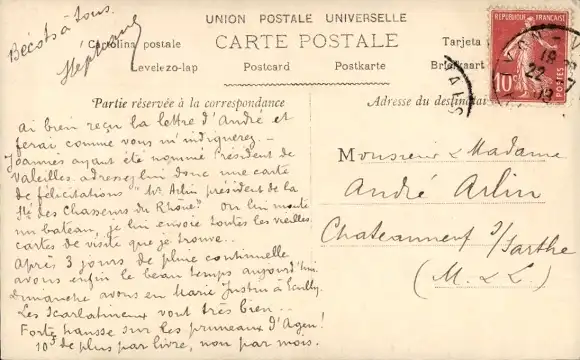 Bécots à tous.
Stéphane
UNION POSTALE UNIVERSELLE
Carolina postale
CARTE POSTALE
Tarjeta
Levelezo-lap
Postcard
Postkarte
Briefkaart
RÉPUBLIQUE FRANÇAISE
10
18
22
7
Partie réservée à la correspondance
Ai bien reçu la lettre d'André et
ferai comme vous m'indiquerez. _
Joannès ayant été nommé Président de
Valeilles adressez lui donc une carte
de félicitations "Mr Arlin président de la
Sté des Chasseurs du Rhône" On lui monte
un bateau, je lui envoie toutes les vieilles
cartes de visite que je trouve..
Après 3 jours de pluie continuelle
avons enfin le beau temps aujourd'hui.
Dimanche avons eu Marie Justin à Ecully.
Les Scarlatineux vont très bien...
Forte hausse sur les pruneaux d'Agen!
10s de plus par livre, non par mois.
Adresse du destinatai
Monsieur & Madame
André Arlin
Chateauneuf s/Sarthe
(M. & L.)